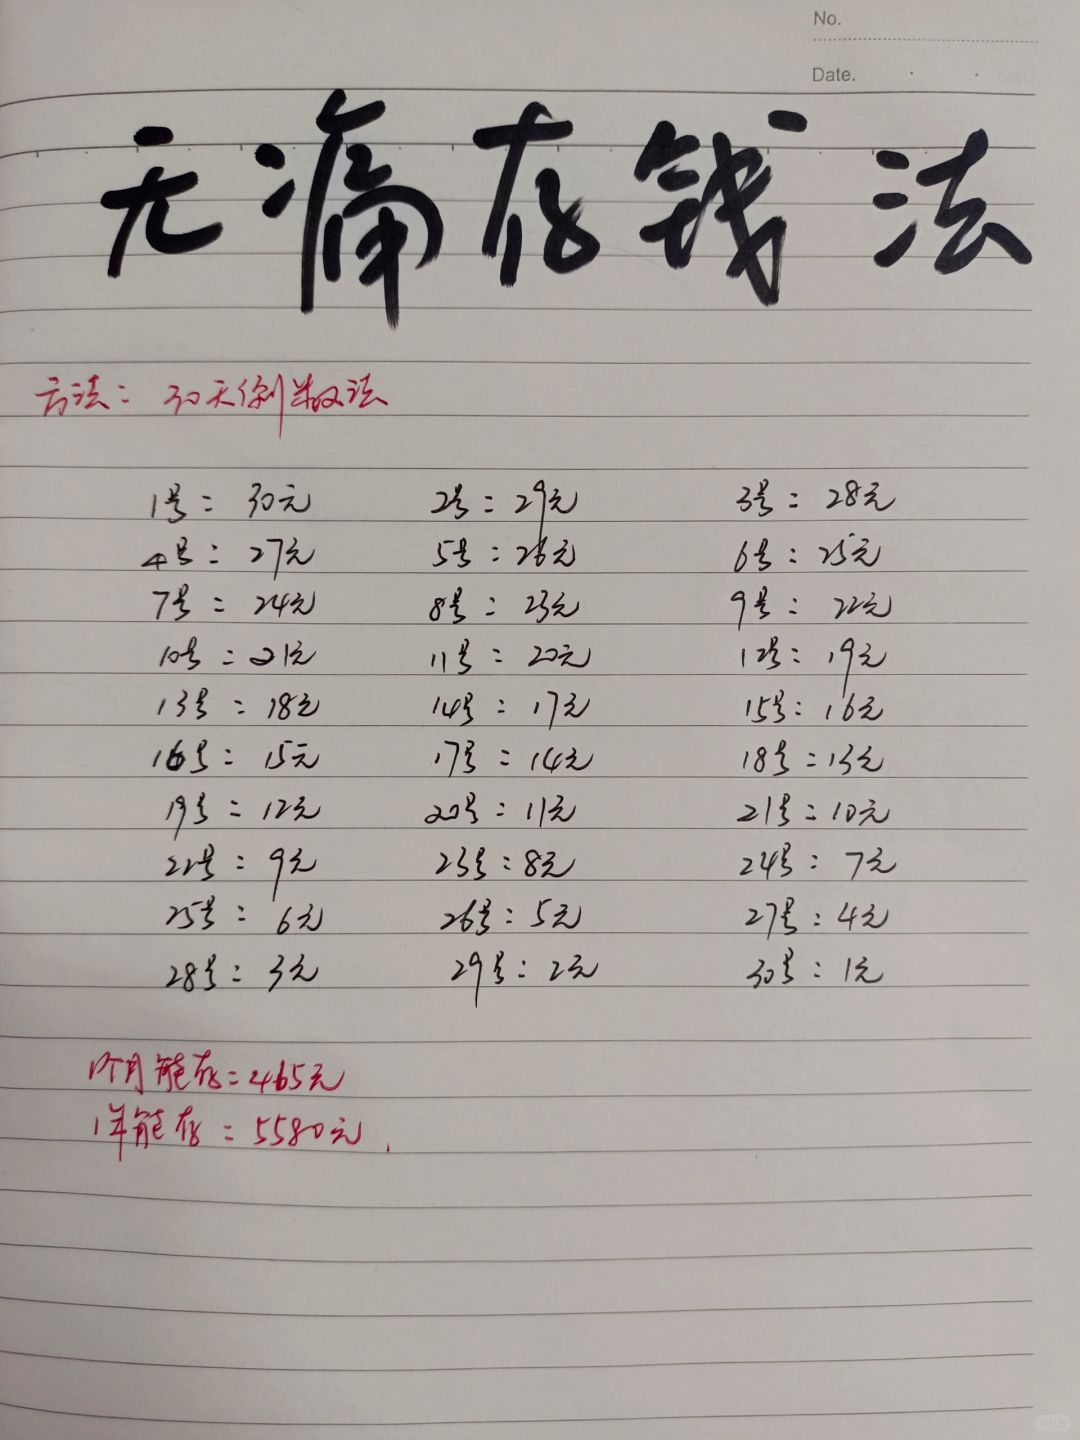 No.
Date.
无痛存钱法
方法：30天倒数法
1号：30元 2号：29元 3号：28元
4号：27元 5号：26元 6号：25元
7号：24元 8号：23元 9号：22元
10号：21元 11号：20元 12号：19元
13号：18元 14号：17元 15号：16元
16号：15元 17号：14元 18号：13元
19号：12元 20号：11元 21号：10元
22号：9元 23号：8元 24号：7元
25号：6元 26号：5元 27号：4元
28号：3元 29号：2元 30号：1元
1个月能存：465元
1年能存：5580元.